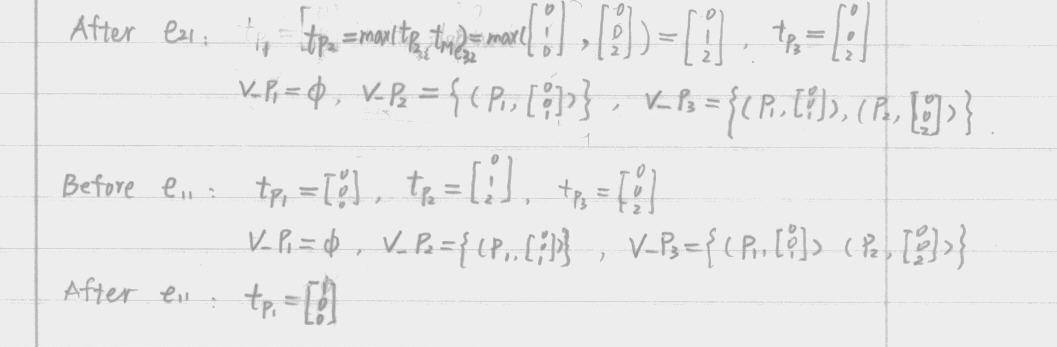 After e₂₁: t_P₂ = max(t_P₂, t_M e₃₂) = max([0 1 0], [0 0 2]) = [0 1 2], t_P₃ = [0 0 2]
V_P₁ = ϕ, V_P₂ = {(P₁, [0 0 1])}, V_P₃ = {(P₁, [0 0 1]), (P₂, [0 0 2])}
Before e₁₁: t_P₁ = [0 0 0], t_P₂ = [0 1 2], t_P₃ = [0 0 2]
V_P₁ = ϕ, V_P₂ = {(P₁, [0 0 1])}, V_P₃ = {(P₁, [0 0 1]) (P₂, [0 0 2])}
After e₁₁: t_P₁ = [1 0 0]